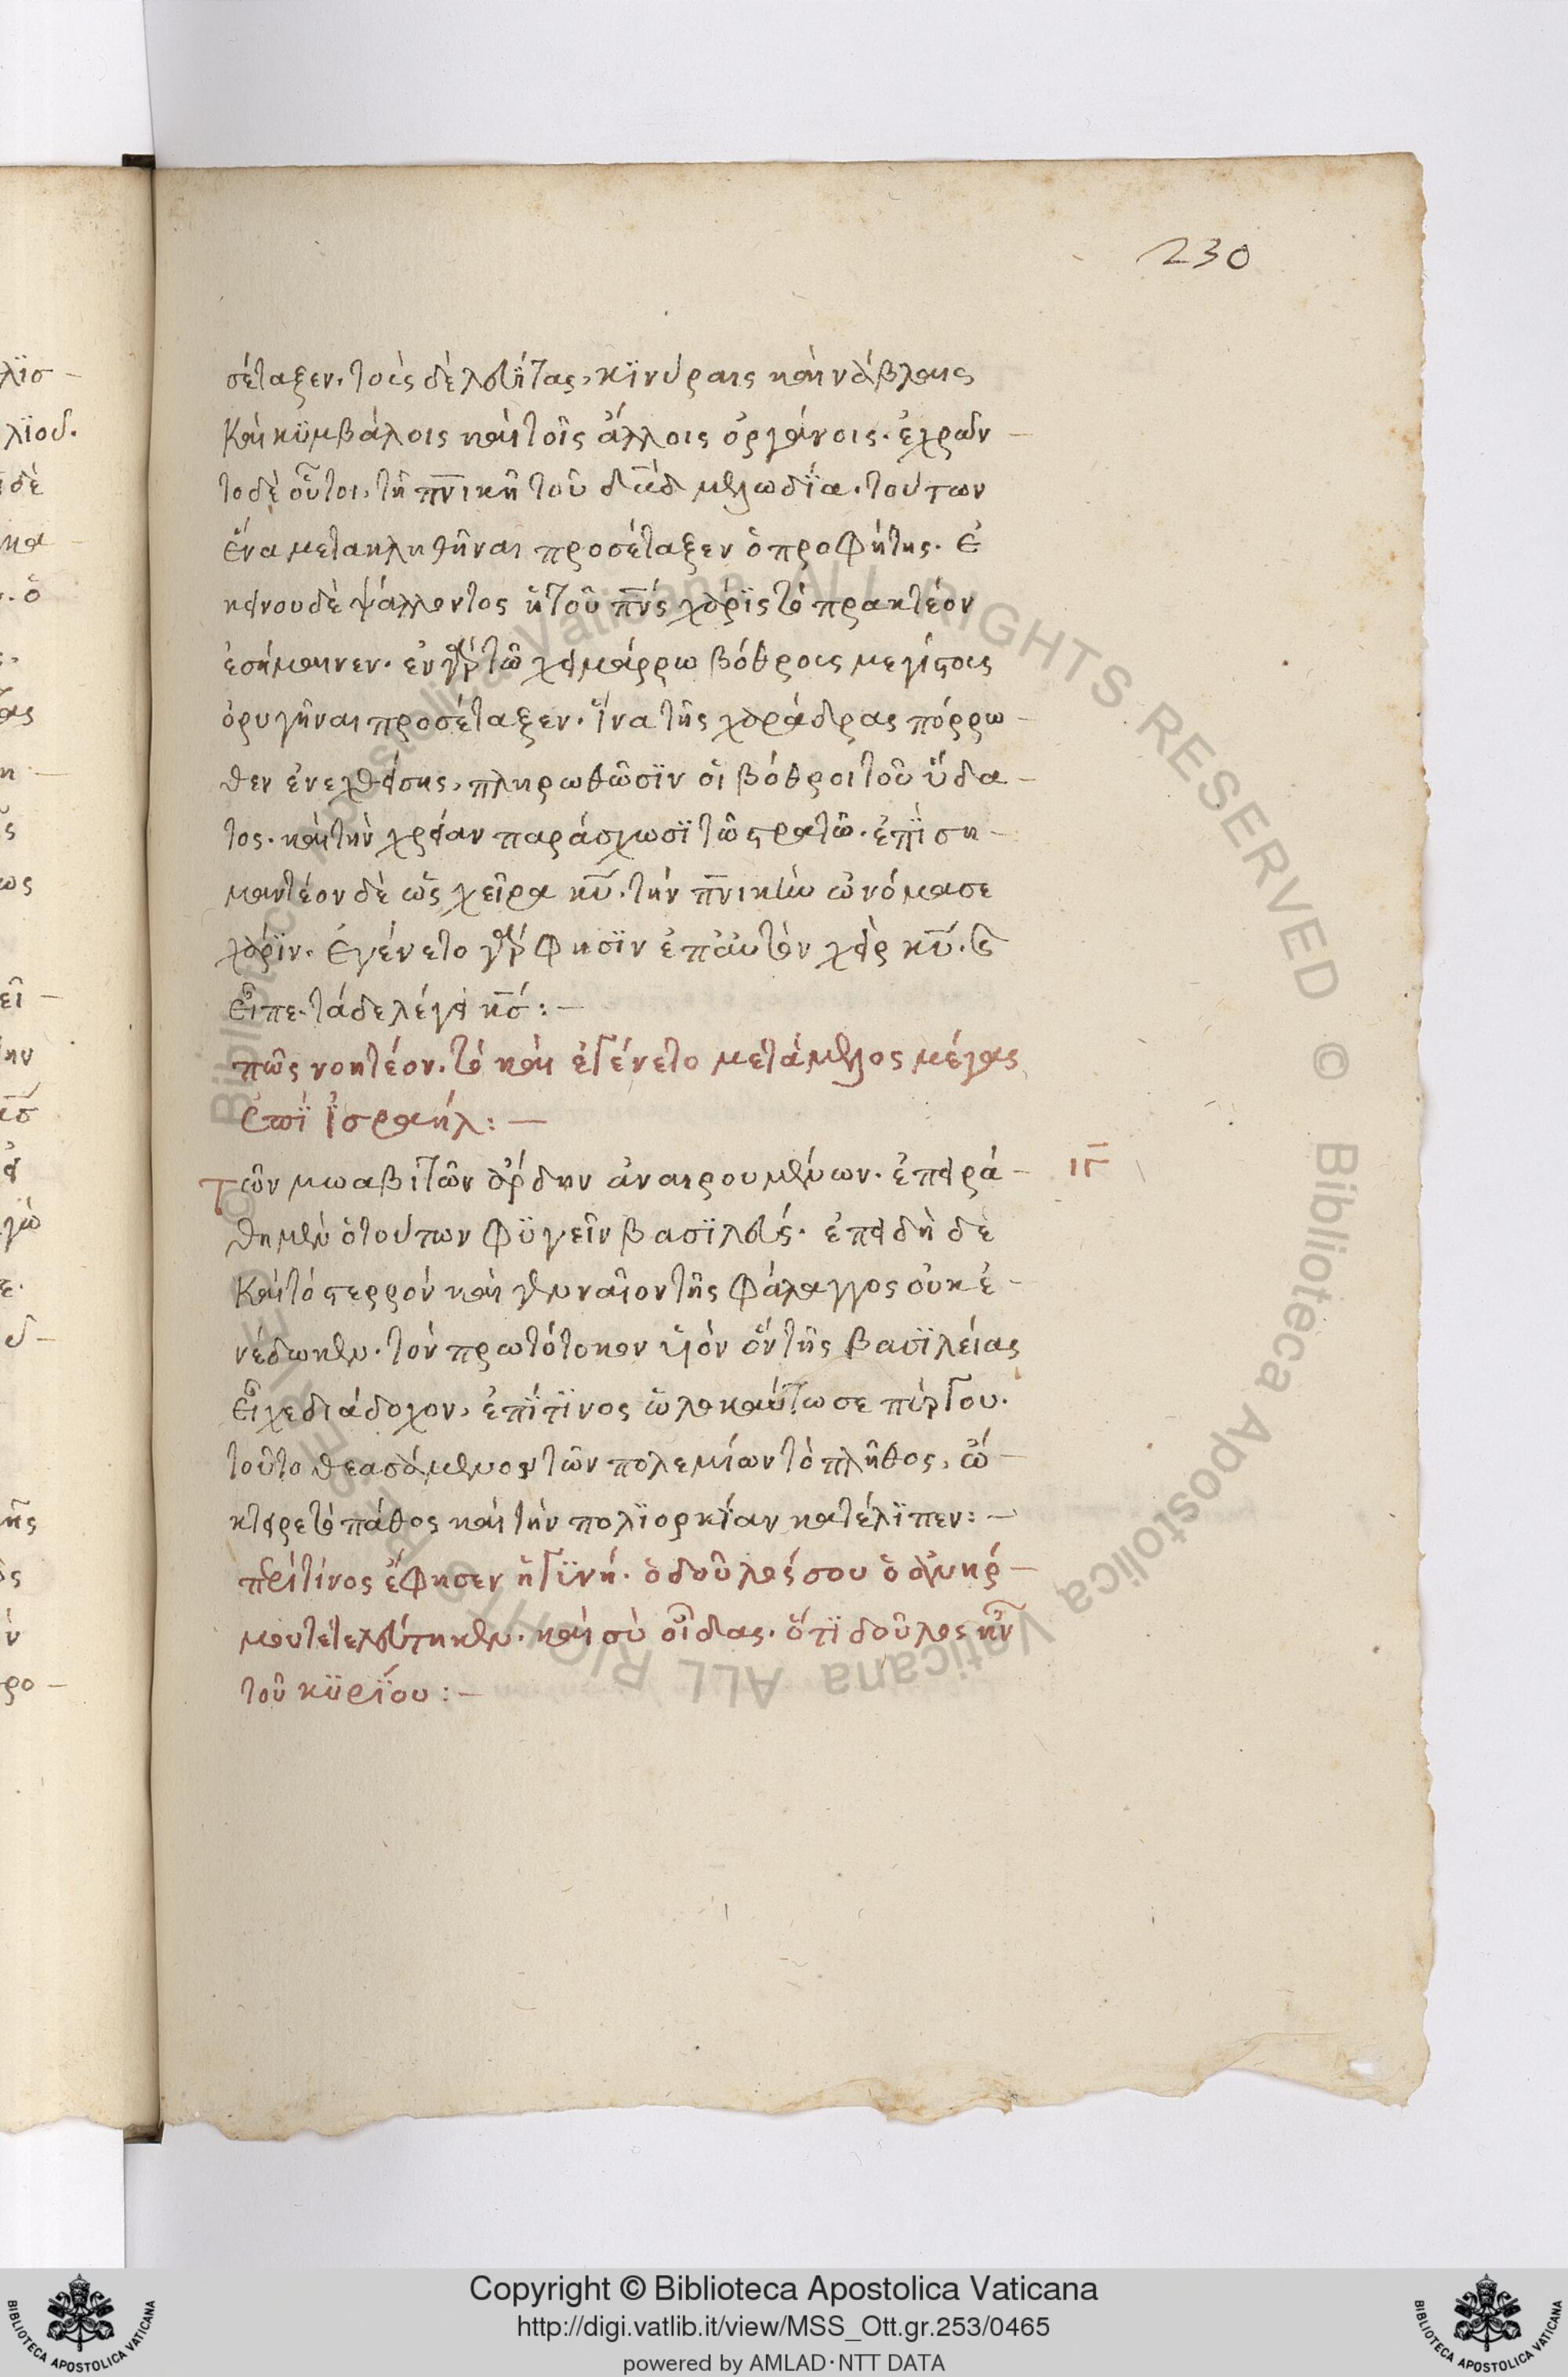 230
σέταξεν. τοὺς δὲ λευΐτας, κϊνύραις καὶ νάβλαις
καὶ κϋμβάλοις καὶ τοῖς ἄλλοις ὀργάνοις. ἐχρῶν –
το δὲ οὗτοι, τῆ π̅ν̅ικῆ τοῦ δ̅α̅δ̅ μελωδΐα. τούτων
ἕνα μετακληθῆναι προσέταξεν ὁ προφήτης. ἐ
κείνου δὲ ψάλλοντος ἡ τοῦ π̅ν̅ς̅ χάρϊς τὸ πρακτέον
ἐσήμαινεν. ἐν γὰρ τῶ χειμάρρω βόθροις μεγίστοις
ὀρυγῆναι προσέταξεν. ἵνα τῆς χαράδρας πόρρω –
θεν ἐνεχθείσης, πληρωθῶσϊν οἱ βόθροι τοῦ ὕδα –
τος. καὶ τὴν χρείαν παράσχωσϊ τῶ στρατῶ. ἐπϊ ση –
μαντέον δὲ ὡς χεῖρα κ̅υ̅. τὴν π̅ν̅ικὴν ὠνόμασε
χάρϊν. ἐγένετο γὰρ φησϊν ἐπ' αὐτὸν χεὶρ κ̅υ̅. καὶ
εἶπε. τάδε λέγει κ̅ς̅ : –
πῶς νοητέον. τὸ καὶ ἐγένετο μετάμελος μέγας
ἐπϊ ϊσραήλ : –
τῶν μωαβιτῶν ἄρδην ἀναιρουμένων. ἐπειρά –
ι̅γ̅
θη μὲν ὁ τούτων φϋγεῖν βασϊλεύς. ἐπειδὴ δὲ
καὶ τὸ στερρὸν καὶ γενναῖον τῆς φάλαγγος οὐκ ἐ –
νέδωκεν. τὸν πρωτότοκον υἱὸν ὃν τῆς βασϊλείας
εἶχε διάδοχον, ἐπΐ τϊνος ὡλοκαύτωσε πύργου.
τοῦτο θεασάμενος τῶν πολεμίων τὸ πλῆθος, ὤ –
κτειρε τὸ πάθος καὶ τὴν πολϊορκίαν κατέλϊπεν : –
περὶ τίνος ἔφησεν ἡ γϋνή. ὁ δοῦλός σου ὁ ἀνήρ –
μου τετελεύτηκεν. καὶ σὺ οἶδας. ὅτϊ δοῦλος ἦν
τοῦ κϋρΐου : –
Copyright © Biblioteca Apostolica Vaticana
http://digi.vatlib.it/view/MSS_Ott.gr.253/0465
powered by AMLAD·NTT DATA